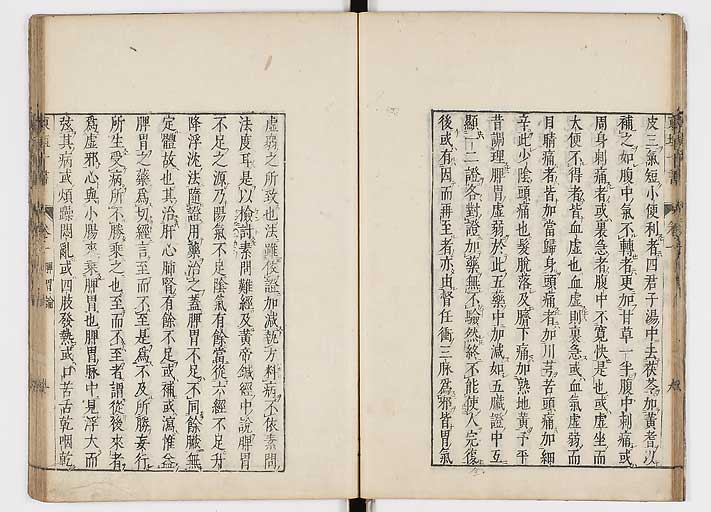 皮三氣短小便利者四君子湯中去茯苓加黃耆以
補之如腹中氣不轉者更加甘草一半腹中刺痛或
周身刺痛者或裏急者腹中不寬快是也或虛坐而
大便不得者皆血虛也血虛則裏急或血氣虛弱而
目睛痛者皆加當歸身頭痛者加川芎苦頭痛加細
辛此少陰頭痛也髮脫落及臍下痛加熟地黃予平
昔調理脾胃虛弱於此五藥中加減如五臟證中互
顯一二證各對證加藥無不驗然終不能使人完復
後或有因而再至者亦由督任衝三脉爲邪皆胃氣
虛弱之所致也法雖依證加減執方料病不依素問
法度耳是以檢討素問難經及黃帝鍼經中說脾胃
不足之源乃陽氣不足陰氣有餘當從六經不足升
降浮沈法隨證用藥治之蓋脾胃不足不同餘臟無
定體故也其治肝心肺腎有餘不足或補或瀉惟益
脾胃之藥爲切經言至而不至是爲不及所勝妄行
所生受病所不勝乘之也至而不至者謂從後來者
爲虛邪心與小腸來乘脾胃也脾胃脉中見浮大而
弦其病或煩躁悶亂或四肢發熱或口苦舌乾咽乾
脾胃論